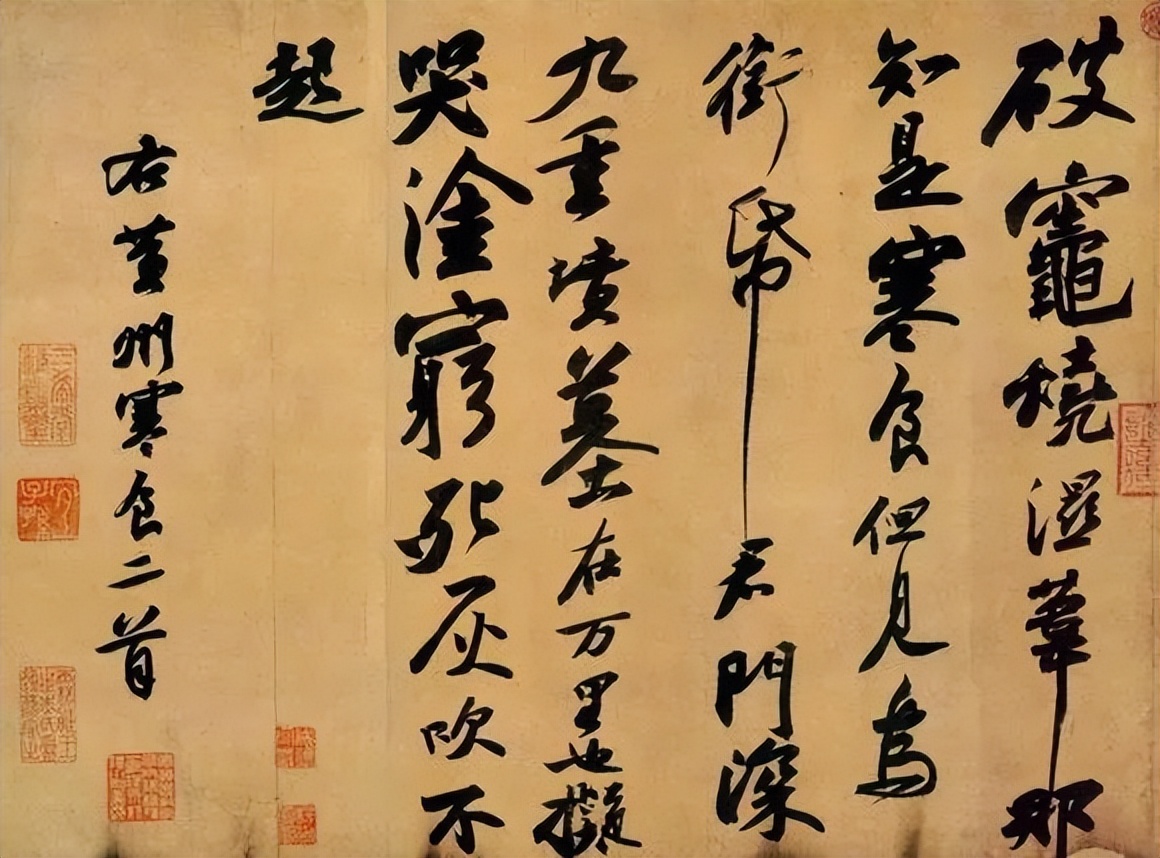 破竈燒濕葦那
知是寒食但見烏
銜帋君門深
九重墳墓在万里也擬
哭塗窮死灰吹不
起
右黃州寒食二首